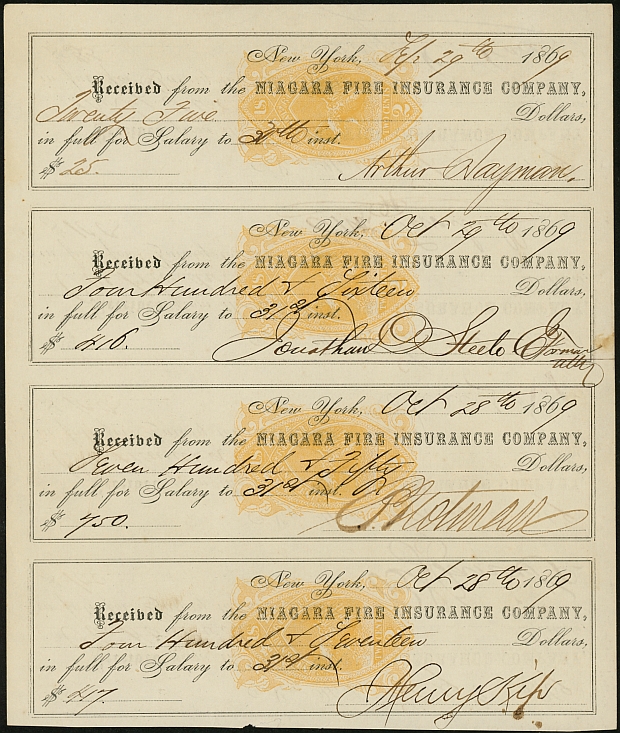 New York, Sep 29th 1869
Received from the NIAGARA FIRE INSURANCE COMPANY,
Twenty Five Dollars,
in full for Salary to 30th inst.
$25. Arthur Dayman.
New York, Oct 29th 1869
Received from the NIAGARA FIRE INSURANCE COMPANY,
Four Hundred & Sixteen Dollars,
in full for Salary to 31st inst.
$416. Jonathan D Steele
New York, Oct 28th 1869
Received from the NIAGARA FIRE INSURANCE COMPANY,
Seven Hundred & Fifty Dollars,
in full for Salary to 31st inst.
$750. P. Notman
New York, Oct 28th 1869
Received from the NIAGARA FIRE INSURANCE COMPANY,
Four Hundred & Seventeen Dollars,
in full for Salary to 31st inst.
$417. Henry Kip